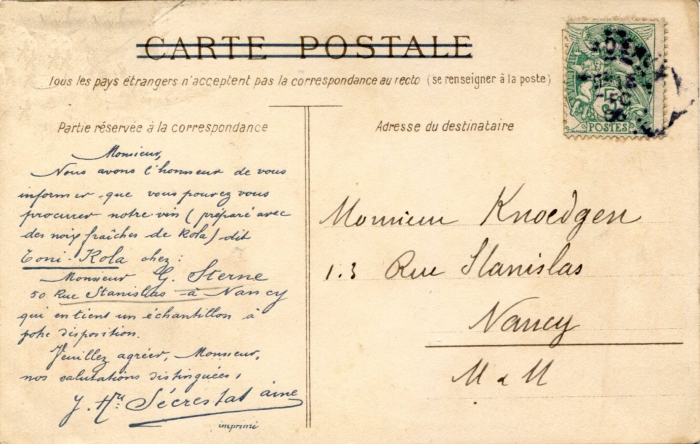 CARTE POSTALE
Tous les pays étrangers n'acceptent pas la correspondance au recto (se renseigner à la poste)
Partie réservée à la correspondance
Monsieur,
Nous avons l'honneur de vous
informer que vous pouvez vous
procurer notre vin (préparé avec
des noix fraîches de Kola) dit
Toni-Kola chez:
Monsieur G. Sterne
50 Rue Stanislas à Nancy
qui en tient un échantillon à
votre disposition.
Veuillez agréer, Monsieur,
nos salutations distinguées,
J. Hte Sécrestat aîné
imprimé
Adresse du destinataire
Monsieur Knoedgen
13 Rue Stanislas
Nancy
M & M
POSTES